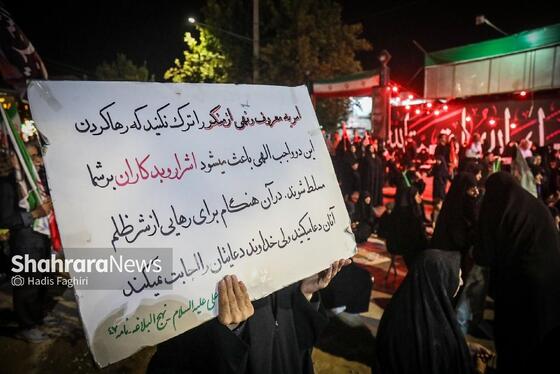 امر به معروف و نهی از منکر را ترک نکنید که رها کردن
این دو واجب الهی باعث میشود اشرار و بدکاران بر شما
مسلط شوند، در آن هنگام برای رهایی از شر ظلم
دعا میکنید ولی خداوند دعایتان را اجابت نمیکند
علی علیه السلام - نهج البلاغه - نامه ۴۷
ShahraraNews
© Hadis Faghiri